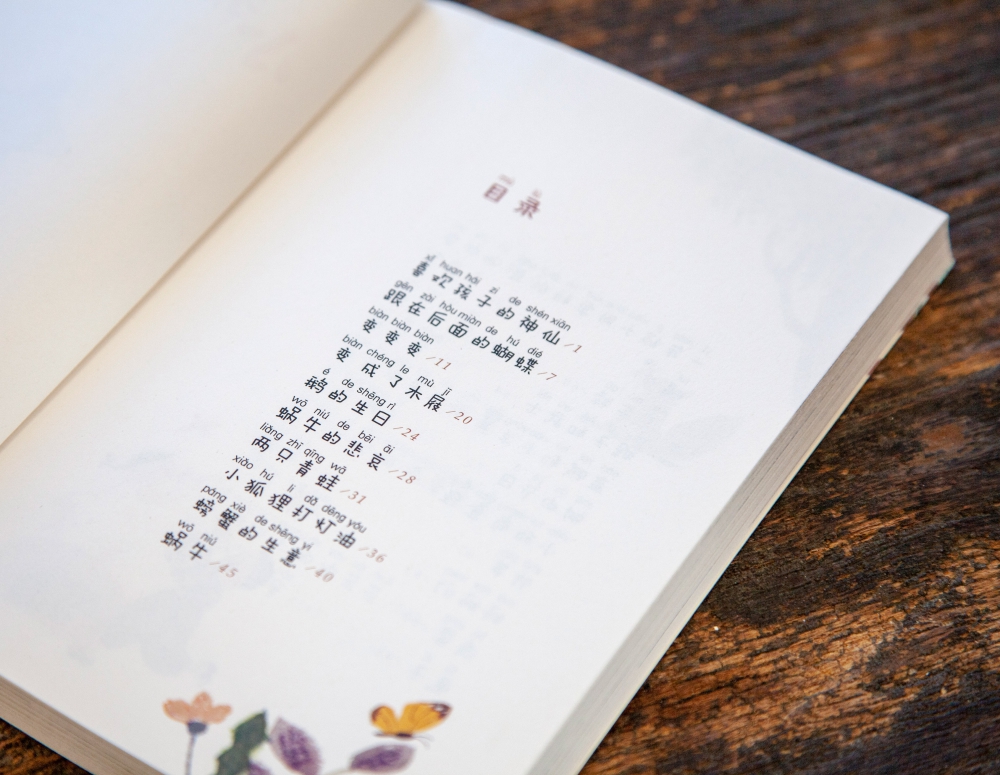 mù lù
目录
xǐ huan hái zi de shén xiān
喜欢孩子的神仙 /1
gēn zài hòu miàn de hú dié
跟在后面的蝴蝶 /7
biàn biàn biàn
变变变 /11
biàn chéng le mù jī
变成了木屐 /20
é de shēng rì
鹅的生日 /24
wō niú de bēi āi
蜗牛的悲哀 /28
liǎng zhī qīng wā
两只青蛙 /31
xiǎo hú li dǎ dēng yóu
小狐狸打灯油 /36
páng xiè de shēng yi
螃蟹的生意 /40
wō niú
蜗牛 /45